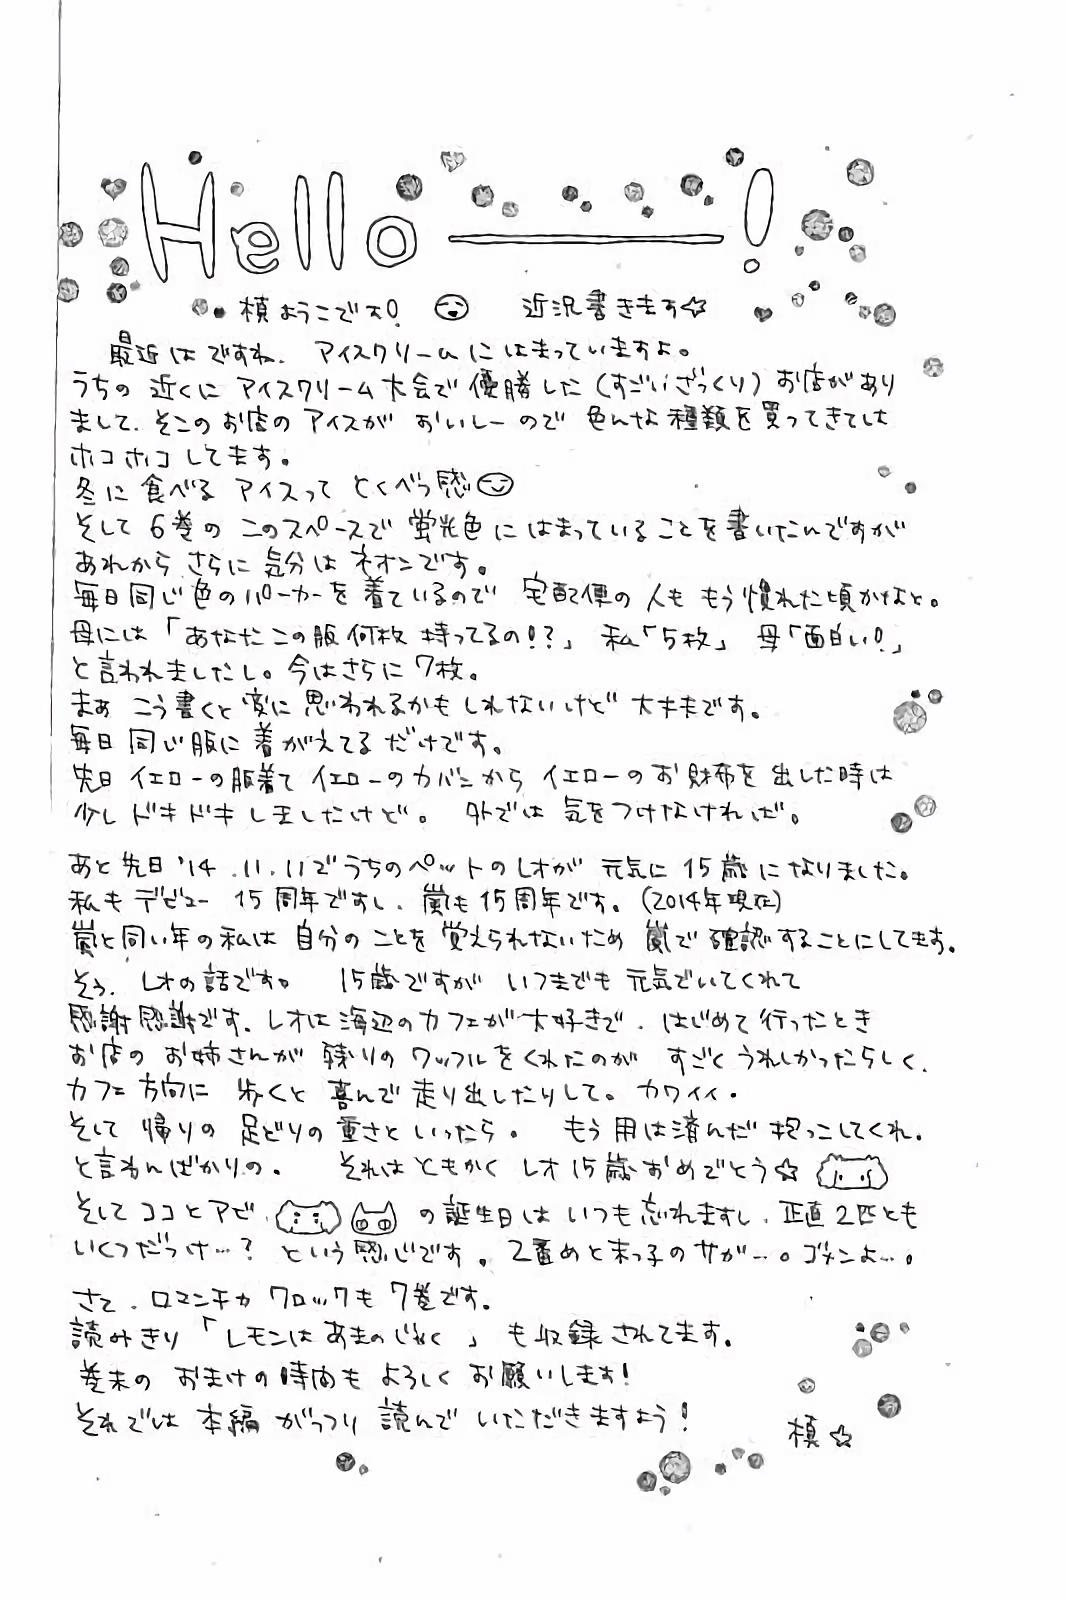 Hello ― !
槙ようこです! 近況書きます☆
最近はですね、アイスクリームにはまっていますよ。
うちの近くにアイスクリーム大会で優勝した(すごいざっくり)お店があり
まして、そこのお店のアイスがおいしーので色んな種類を買ってきてしは
ホコホコしてます。
冬に食べるアイスってとくべつ感
そして6巻のこのスペースで蛍光色にはまっていることを書いたんですが
あれからさらに気分はネオンです。
毎日同じ色のパーカーを着ているので宅配便の人ももう慣れた頃かなと。
母には「あなたこの服何枚持ってるの!?」私「5枚」母「面白い!」
と言われましたし。今はさらに7枚。
まぁこう書くと変に思われるかもしれないけど大丈夫です。
毎日同じ服に着がえてるだけです。
先日イエローの服着てイエローのカバンからイエローのお財布を出した時は
少しドキドキしましたけど。外では気をつけなければ。
あと先日'14.11.11でうちのペットのレオが元気に15歳になりました。
私もデビュー15周年ですし、嵐も15周年です。(2014年現在)
嵐と同い年の私は自分のことを覚えられないため嵐で確認することにしてます。
そう、レオの話です。15歳ですがいつまでも元気でいてくれて
感謝感謝です。レオは海辺のカフェが大好きで、はじめて行ったとき
お店のお姉さんが残りのワッフルをくれたのがすごくうれしかったらしく、
カフェ方向に歩くと喜んで走り出したりして。カワイイ。
そして帰りの足どりの重さといったら。もう用は済んだ抱っこしてくれ。
と言わんばかりの。それはともかくレオ15歳おめでとう☆
そしてココとアビ、の誕生日はいつも忘れますし、正直2匹とも
いくつだっけ…?という感じです。2番めと末っ子のサガ…。ゴメンよ…。
さて、ロマンチカクロックも7巻です。
読みきり「レモンはあまのじゃく」も収録されてます。
巻末のおまけの時間もよろしくお願いします!
それでは本編がっつり読んでいただきますよう!
槙☆